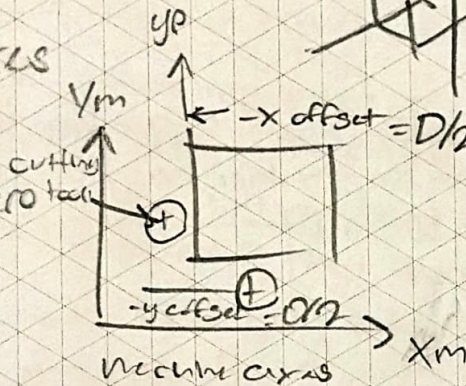 yp
Ym
← -X offset = D/2
cutting
tool
-y offset = D/2
Xm
machine axes